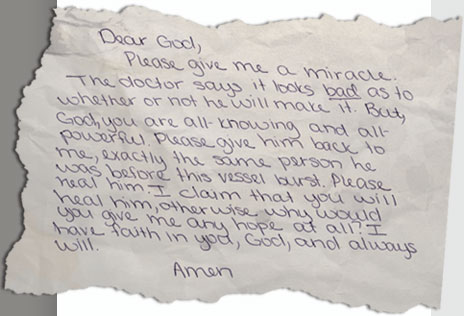 Dear God,
Please give me a miracle.
The doctor says it looks bad as to
whether or not he will make it. But,
God, you are all-knowing and all-
powerful. Please give him back to
me, exactly the same person he
was before this vessel burst. Please
heal him. I claim that you will
heal him, otherwise why would
you give me any hope at all? I
have faith in you, God, and always
will.
Amen